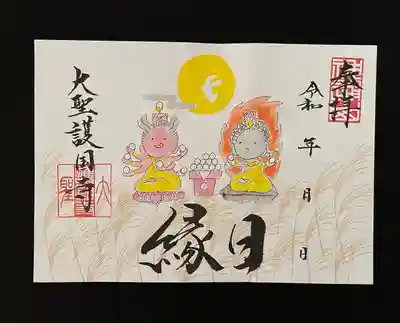 奉拝
令和 年 月 日
縁日
大聖護国寺